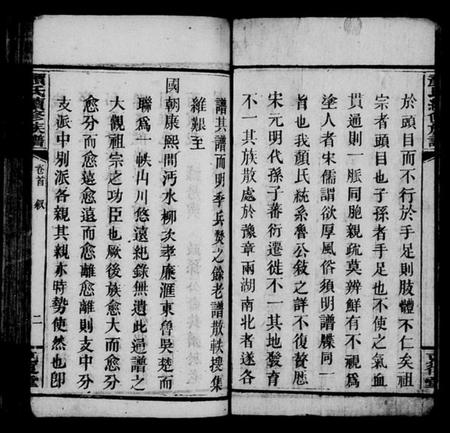 於頭目而不行於手足則肢體不仁矣祖
宗者頭目也子孫者手足也不使之氣血
貫通則一脈同胞親疏莫辨鮮有不視為
塗人者宋儒謂欲厚風俗須明譜牒同一
旨也我顏氏統系魯公敍之詳不復贅厯
宋元明代孫子蕃衍遷徙不一其地髮育
不一其族散處於豫章兩湖南北者遂各
譜其譜而明季兵燹之餘老譜散軼搜集
維艱至
國朝康熙間沔水柳次孝廉滙東魯吳楚而
聯為一帙山川悠遠紀錄無遺此通譜之
大觀祖宗之功臣也厥後族愈大而愈分
愈分而愈遠愈遠而愈離愈離則支中分
支派中别派各親其親亦時勢使然也卽
顏氏續修族譜
卷首
叙
二